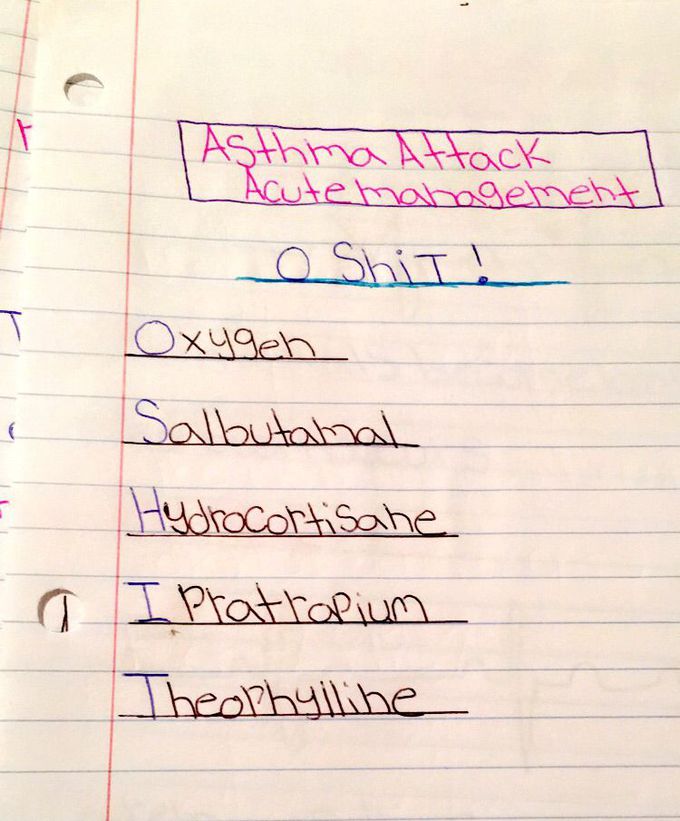 Asthma Attack
Acute management
O ShiT !
Oxygen
Salbutamal
Hydrocortisane
Ipratropium
Theophylline